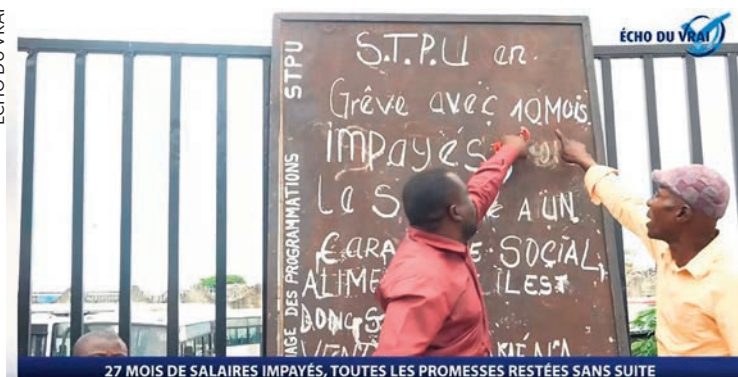 ÉCHO DU VRAI
ÉCHO DU VRAI
STPU
AGE DES PROGRAMMATIONS
S.T.P.U en
Grève avec 10 Mois
IMPAYÉS
La S A UN
CARA E SOCIAL,
ALIME IL EST
DONC S
27 MOIS DE SALAIRES IMPAYÉS, TOUTES LES PROMESSES RESTÉES SANS SUITE